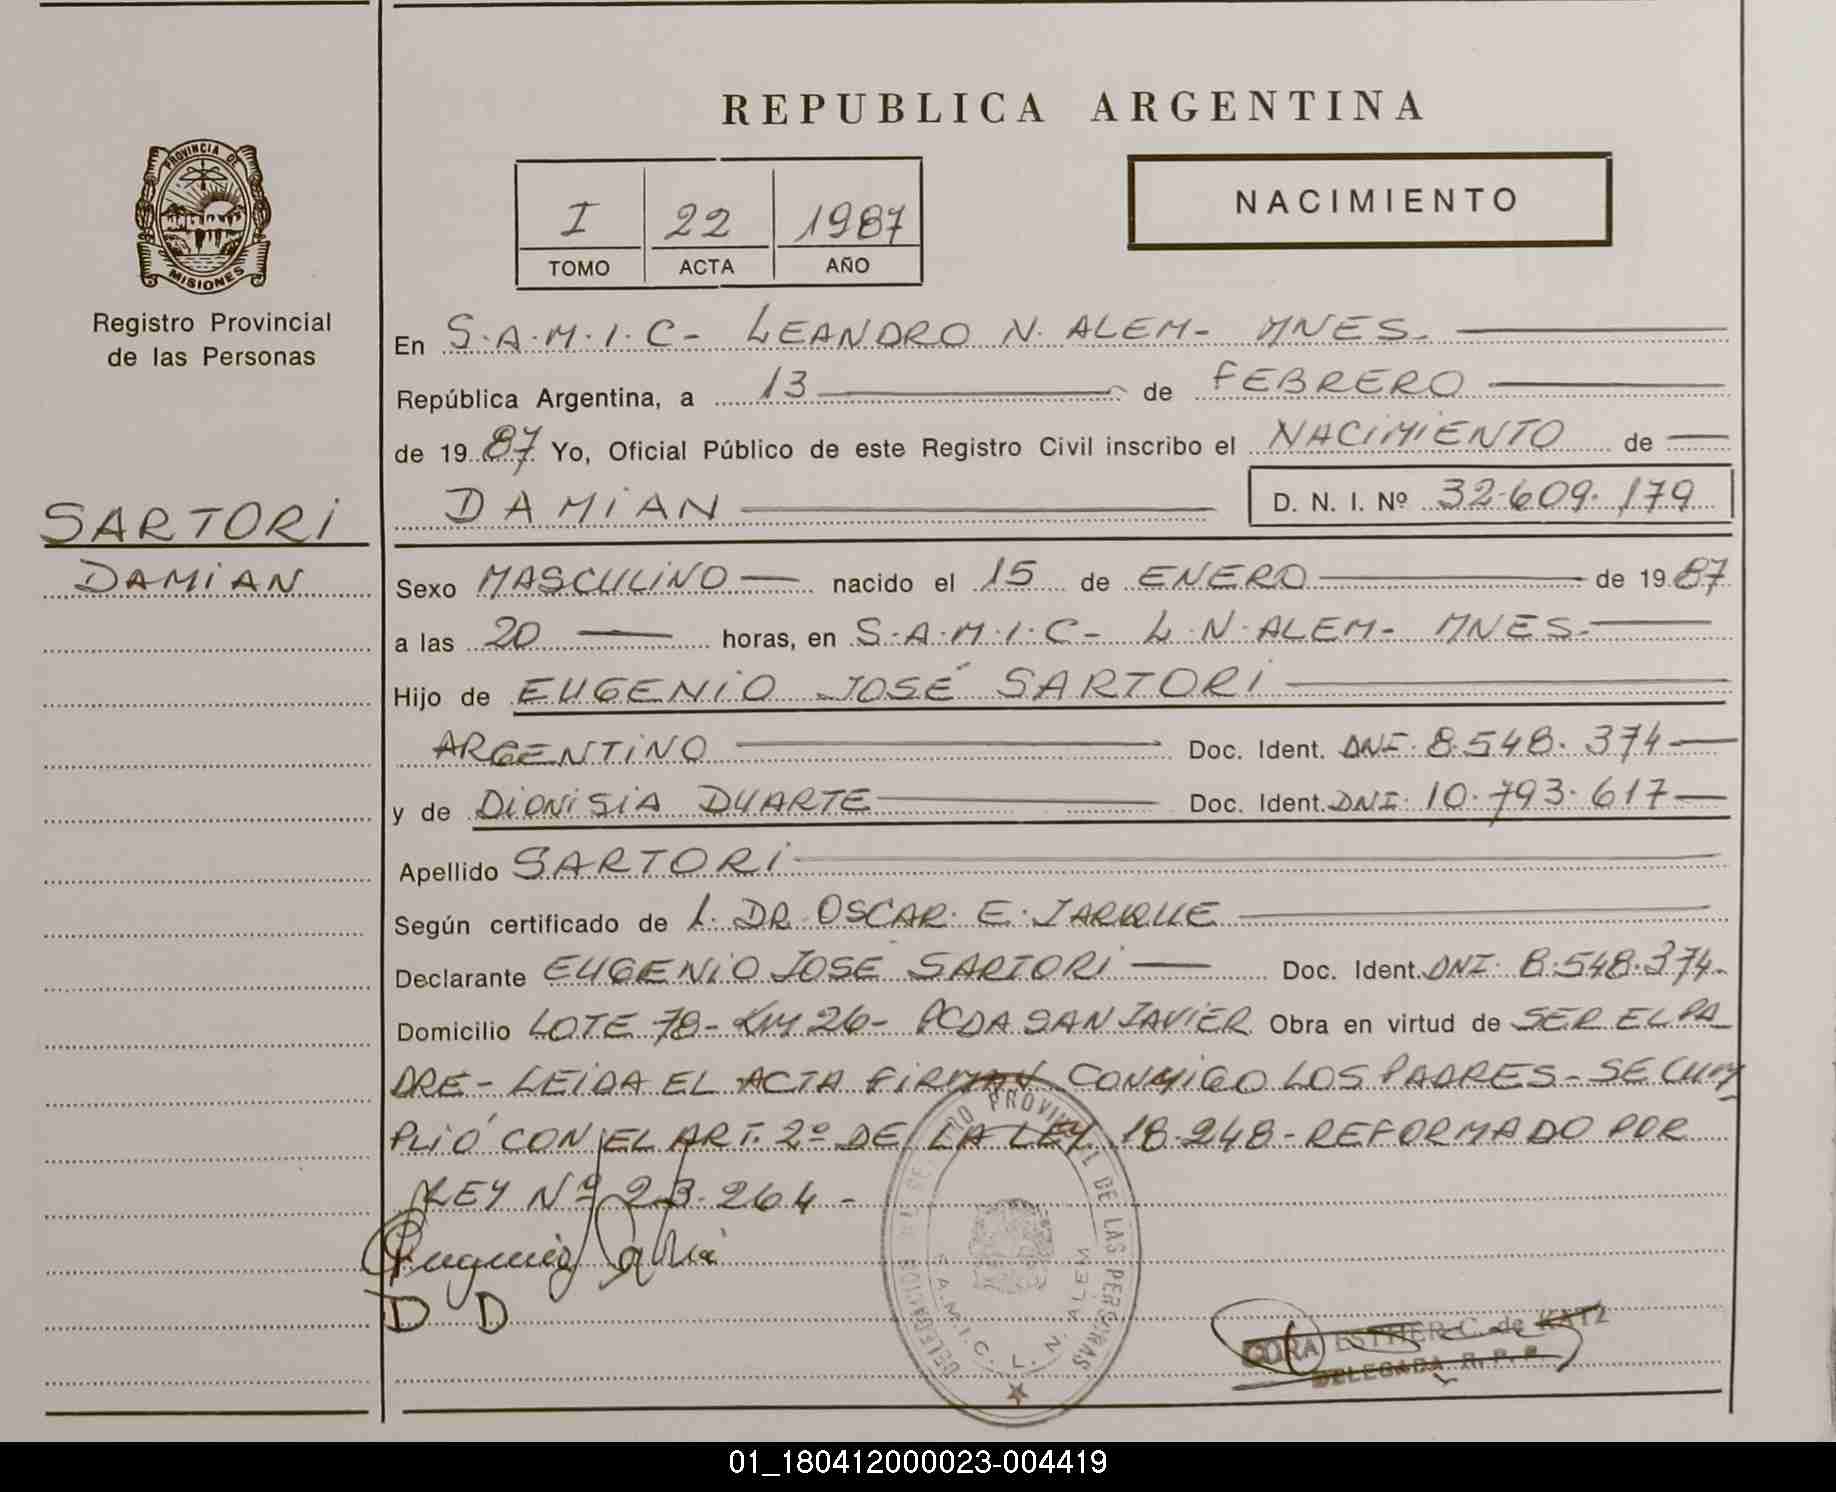 REPUBLICA ARGENTINA
PROVINCIA DE
MISIONES
Registro Provincial
de las Personas
I 22 1987
TOMO ACTA AÑO
NACIMIENTO
En S.A.M.I.C- LEANDRO N. ALEM- MNES.
República Argentina, a 13 de FEBRERO
de 1987 Yo, Oficial Público de este Registro Civil inscribo el NACIMIENTO de
DAMIAN D. N. I. Nº 32.609.179
SARTORI
DAMIAN
Sexo MASCULINO nacido el 15 de ENERO de 1987
a las 20 horas, en S.A.M.I.C- L.N.ALEM- MNES.
Hijo de EUGENIO JOSÉ SARTORI
ARGENTINO Doc. Ident. DNI. 8.548.374
y de DIONISIA DUARTE Doc. Ident. DNI. 10.793.617
Apellido SARTORI
Según certificado de L. DR. OSCAR. E. JARQUE
Declarante EUGENIO JOSE SARTORI Doc. Ident. DNI. 8.548.374.
Domicilio LOTE 78- KM 26- PCDA SAN JAVIER Obra en virtud de SER EL PA
DRE- LEIDA EL ACTA FIRMAN CONMIGO LOS PADRES- SE CUM
PLIÓ CON EL ART. 2º DE LA LEY 18.248- REFORMADO POR
LEY Nº 23.264-
Eugenio Sartori
D D
PROVINCIAL DE LAS PERSONAS
DELEGACION
S.A.M.I.C. L. N. ALEM
CORA ESTHER C. de KATZ
DELEGADA R. P. P.
01_180412000023-004419